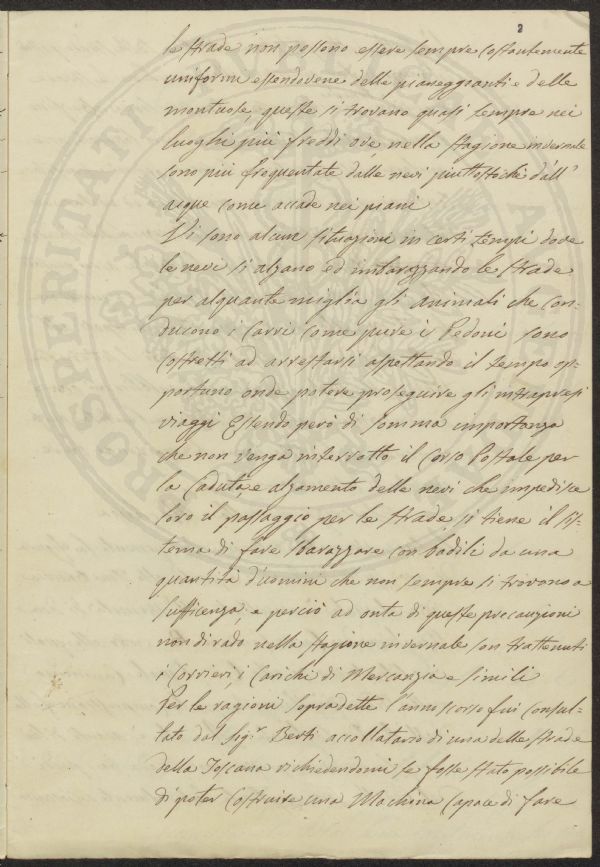 2
le strade non possono essere sempre costantemente
uniformi essendovene delle pianeggianti e delle
montuose, queste si trovano quasi sempre nei
luoghi più freddi ove, nella stagione invernale
sono più frequentate dalle nevi piuttostochè dall'
acque come accade nei piani
Vi sono alcun situazioni in certi tempi dove
le nevi si alzano ed imbarazzando le strade
per alquante miglia gli animali che con-
ducono i Carri come pure i Pedoni sono
costretti ad arrestarsi aspettando il tempo op-
portuno onde potere proseguire gli intrapresi
viaggi Essendo però di somma importanza
che non venga interrotto il Corso Postale per
la caduta e alzamento delle nevi che impedisce
loro il passaggio per le strade si tiene il sis-
tema di fare sbarazzare con badili da una
quantità d'uomini che non sempre si trovono a
sufficenza, e perciò ad onta di queste precauzioni
non di rado nella stagione invernale son trattenuti
i Corrieri, i Carichi di Mercanzia e simili
Per le ragioni sopradette l'anno scorso fui consul-
tato dal Sigr Berti accollatario di una delle strade
della Toscana richiedendomi se fosse stato possibile
di poter costruire una Machina capace di fare
PROSPERITATI PUBLICAE